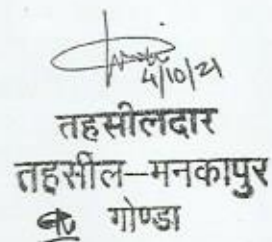 4/10/21
तहसीलदार
तहसील–मनकापुर
गोण्डा